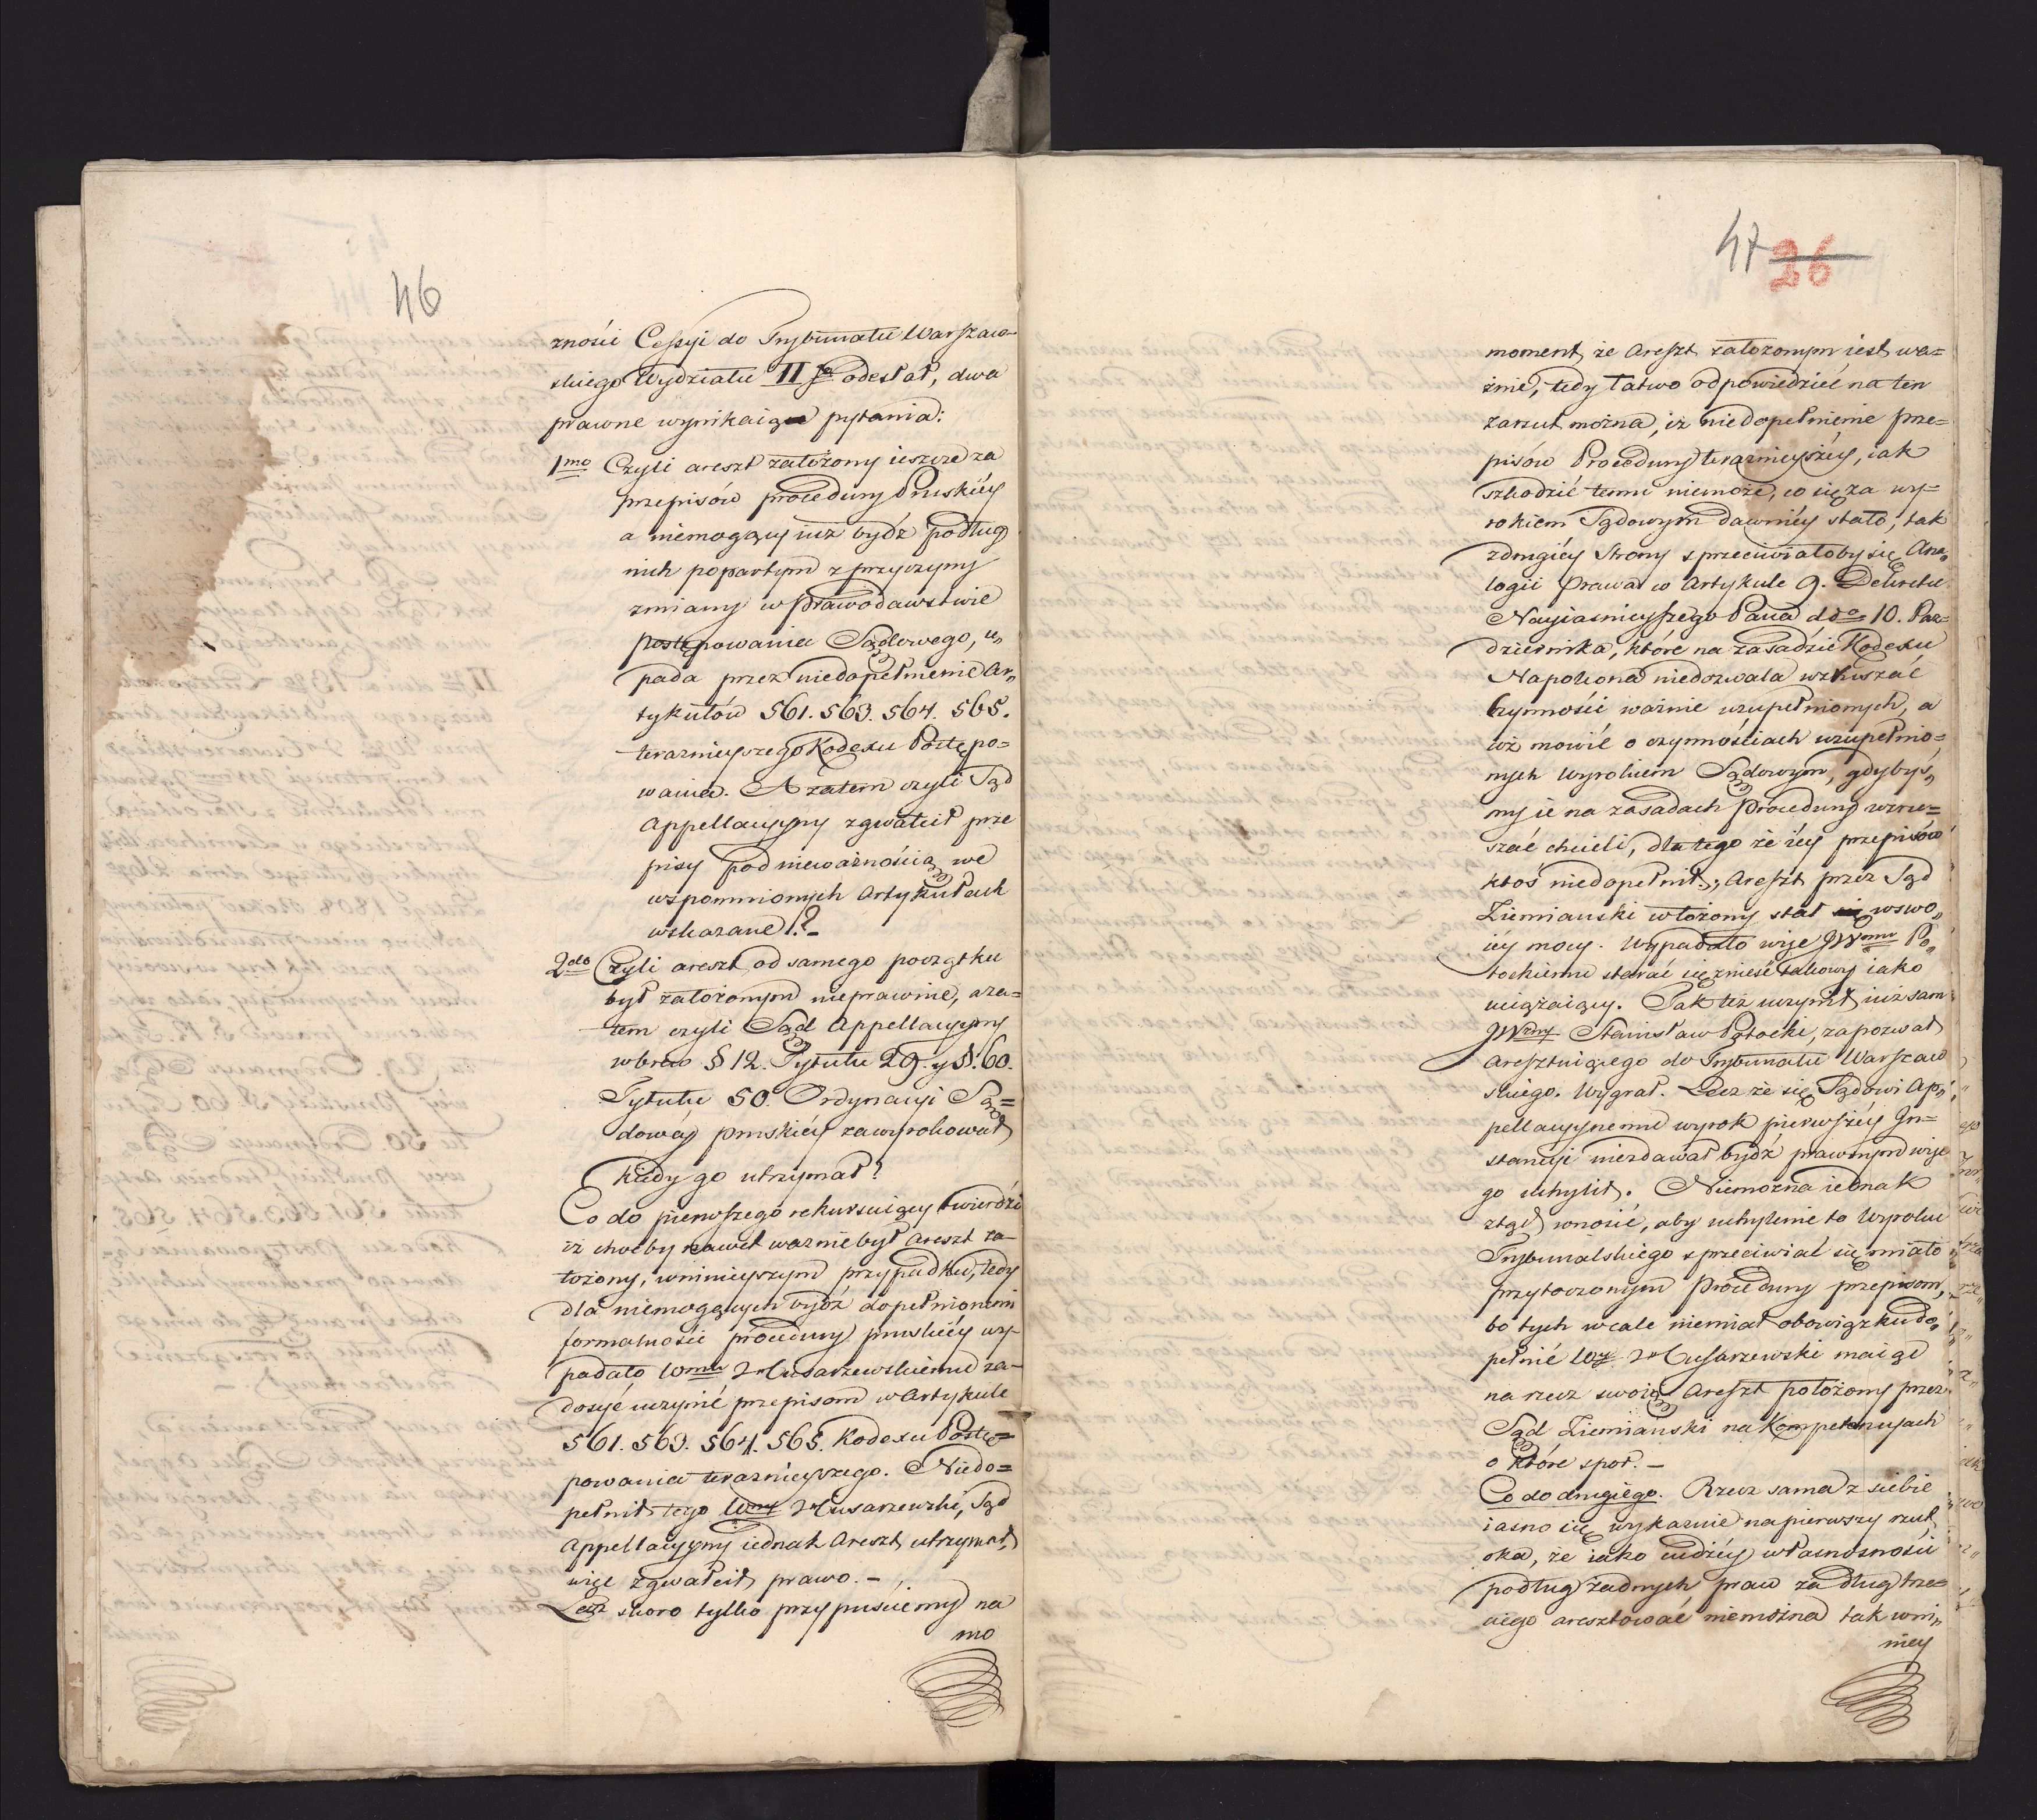 46
żności Cessyi do Trybunału Warszaw-
skiego Wydziału II go odesłał, dwa
prawne wynikaią pytania:
1mo Czyli areszt założony ieszcze za
przepisów procedury Pruskiéy
a niemogący iuż bydź podług
nich popartym z przyczyny
zmiany w prawodawstwie
postępowania Sądowego, u„
pada przez niedopełnienie Ar„
tykułów 561. 563. 564. 565.
teraznieyszego Kodexu Postępo=
wania. A zatem czyli Sąd
Appellacyyny zgwałcił prze
pisy pod nieważnością we
wspomnionych Artykułach
wskazane?-
2do Czyli areszt od samego początku
był założonym nieprawnie, a za=
tem czyli Sąd Appellacyyny
wbrew § 12. Tytułu 29. y §. 60.
Tytułu 50. Ordynacyi Są=
dowéy pruskiéy zawyrokował
kiedy go utrzymał?
Co do pierwszego rekursuiący twierdzi
iż choćby nawet ważnie był Areszt za-
łożony, w ninieyszym przypadku, tedy
dla niemogących bydź dopełnionemi
formalności procedury pruskiéy wy-
padało Wmu Husarzewskiemu za-
dosyć uczynić przepisom w Artykule
561. 563. 564. 565. Kodexu Postę=
powania teraznieyszego. Niedo=
pełnił tego Wny Husarzewski, Sąd
Appellacyyny iednak Areszt utrzymał,
więc zgwałcił prawo.-
Lecz skoro tylko przypuściemy na
mo
47 26
moment, że Areszt założonym iest wa=
żnie, tedy łatwo odpowiedzieć na ten
zarzut można, iż niedopełnienie prze=
pisów Procedury teraznieyszéy, iak
szkodzić temu niemoże, co się za wy=
rokiem Sądowym dawniéy stało, tak
z drugiéy Strony sprzeciwiałoby się Ana„
logii Prawa w Artykule 9. Dekretu
Nayiaśnieyszego Pana dde 10. Paź=
dziernika, które na zasadzie Kodexu
Napoleona niedozwala wzruszać
Czynności ważnie uzupełnionych, a
cóż mówić o czynnościach uzupełnio=
nych Wyrokiem Sądowym, gdybyś„
my ie na zasadach Procedury wzru=
szać chcieli, dla tego że iéy przepisów
ktoś niedopełnił; Areszt przez Sąd
Ziemiański włożony stał w swo„
iéy mocy. Wypadało więc JWmu Po„
tockiemu starać się znieść takowy iako
uciążaiący. Tak też uczynił iuż sam
JWny Stanisław Potocki, zapozwał
Aresztuiącego do Trybunału Warszaw
skiego. Wygrał. Lecz że się Sądowi Ap„
pellacyynemu wyrok pierwszéy In=
stancyi niezdawał bydź prawnym więc
go uchylił. Niemożna iednak
ztąd wnosić, aby uchylenie to Wyroku
Trybunalskiego sprzeciwiać się miało
przytoczonym Procedury przepisom,
bo tych wcale niemiał obowiązku do„
pełnić Wny Husarzewski maiąc
na rzecz swoią Areszt położony przez
Sąd Ziemiański na Kompetencyach
o które spór.-
Co do drugiego. Rzecz sama z siebie
iasno się wykaznie na pierwszy rzut
oka, że iako cudzéy własnosności
podług żadnych praw za dług trze=
ciego aresztować niemożna tak w ni„
niey